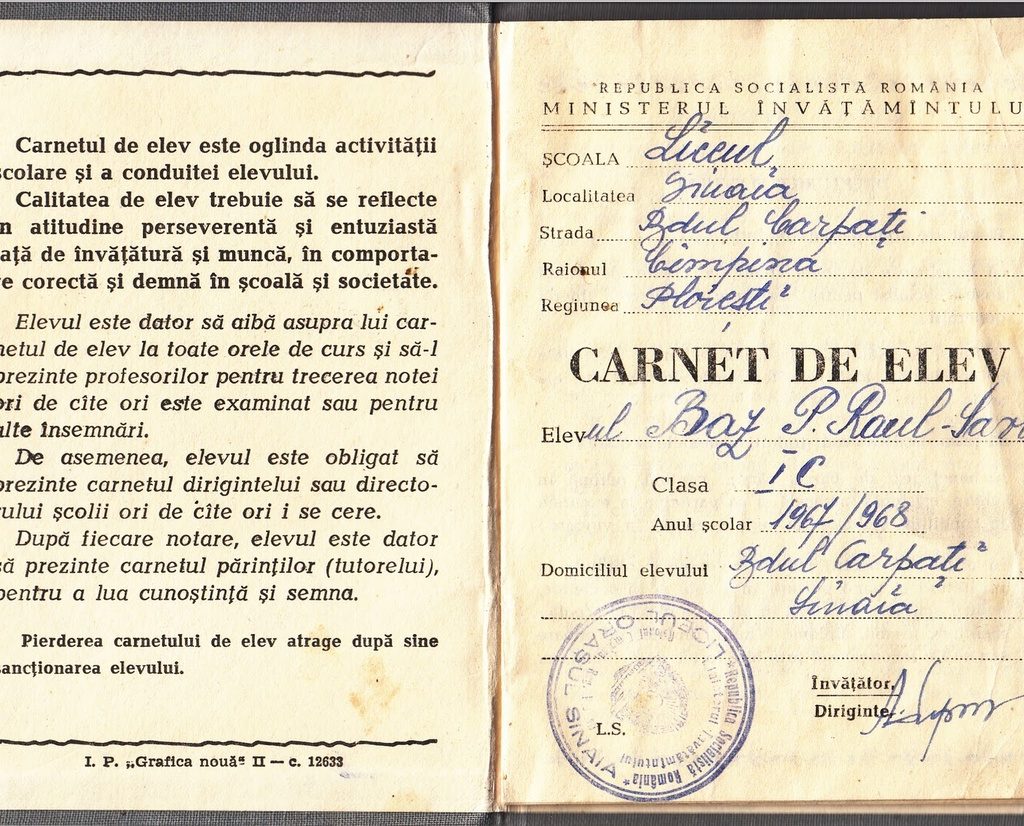 Carnetul de elev este oglinda activității
școlare și a conduitei elevului.
Calitatea de elev trebuie să se reflecte
în atitudine perseverentă și entuziastă
față de învățătură și muncă, în comporta-
re corectă și demnă în școală și societate.
Elevul este dator să aibă asupra lui car-
netul de elev la toate orele de curs și să-l
prezinte profesorilor pentru trecerea notei
ori de cîte ori este examinat sau pentru
alte însemnări.
De asemenea, elevul este obligat să
prezinte carnetul dirigintelui sau directo-
rului școlii ori de cîte ori i se cere.
După fiecare notare, elevul este dator
să prezinte carnetul părinților (tutorelui),
pentru a lua cunoștință și semna.
Pierderea carnetului de elev atrage după sine
sancționarea elevului.
I. P. „Grafica nouă" II — c. 12633
REPUBLICA SOCIALISTĂ ROMÂNIA
MINISTERUL ÎNVĂȚĂMÎNTULU
ȘCOALA Liceul
Localitatea Sinaia
Strada Bdul Carpați
Raionul Cîmpina
Regiunea Ploiești
CARNET DE ELEV
Elevul Baz P. Raul-Sav
Clasa I C
Anul școlar 1967/1968
Domiciliul elevului Bdul Carpați
Sinaia
Învățător,
Diriginte,
L.S.
Republica Socialistă România
LICEUL ORAȘUL SINAIA